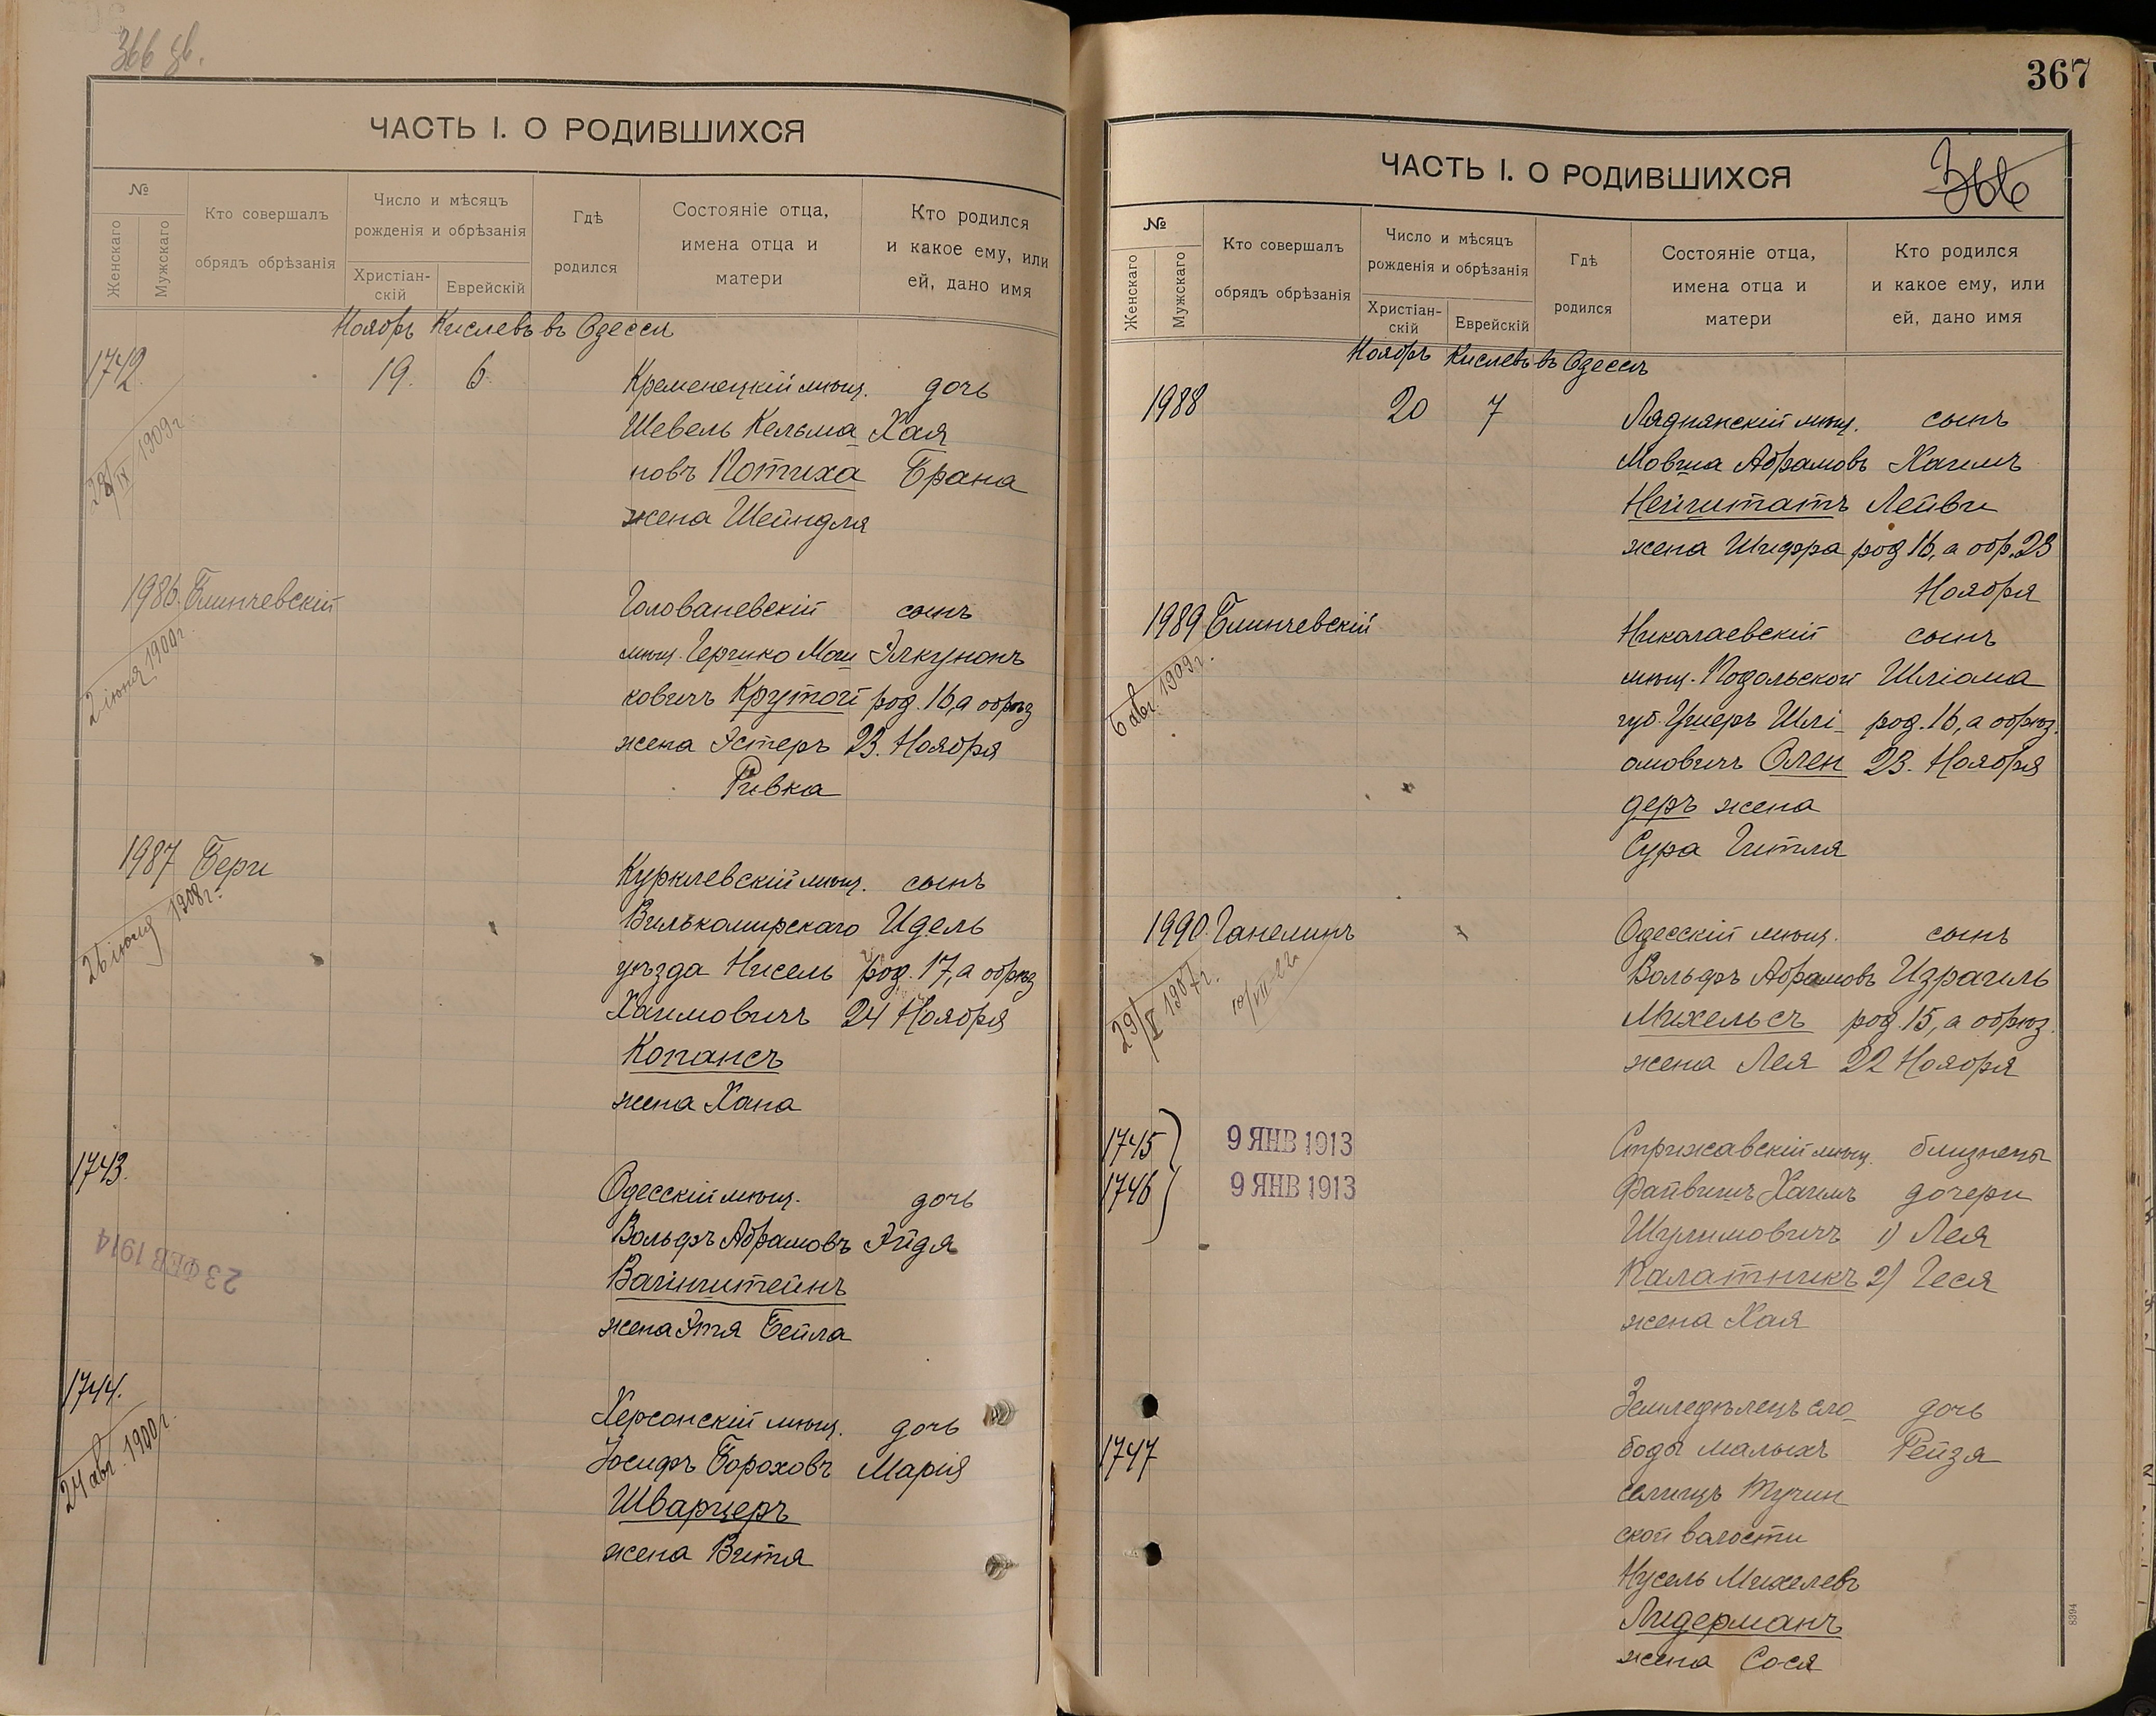 366 об.
ЧАСТЬ I. О РОДИВШИХСЯ
№
Женскаго
Мужскаго
Кто совершалъ
обрядъ обрѣзанія
Число и мѣсяцъ
рожденія и обрѣзанія
Христіан-
скій
Еврейскій
Гдѣ
родился
Состояніе отца,
имена отца и
матери
Кто родился
и какое ему, или
ей, дано имя
Ноябрь Кислевъ въ Одессѣ
1742. 19. 6. Кременецкій мѣщ. дочь
Шевель Кельма Хая
новъ Потиха Брана
жена Шейндля
28/IX 1909 г.
1986. Блинчевскій Голованевскій сынъ
мѣщ. Гершко Мош Элкунонъ
ковичъ Крутой род. 16, а обрѣз
жена Эстеръ 23. Ноября
Ривка
2 іюня 1900 г.
1987 Бери Куркlевскій мѣщ. сынъ
Вилькомирскаго Идель
уѣзда Нисель род. 17, а обрѣз
Хаимовичъ 24 Ноября
Копансъ
жена Хана
26 іюля 1908 г.
1743. Одесскій мѣщ. дочь
Вольфъ Абрамовъ Эйдя
Вайнштейнъ
жена Этя Бейла
23 ФЕВ 1914
1744. Херсонскій мѣщ. дочь
Іосифъ Бороховъ Марія
Шварцеръ
жена Витя
24 авг. 1900 г.
367
366
ЧАСТЬ I. О РОДИВШИХСЯ
№
Женскаго
Мужскаго
Кто совершалъ
обрядъ обрѣзанія
Число и мѣсяцъ
рожденія и обрѣзанія
Христіан-
скій
Еврейскій
Гдѣ
родился
Состояніе отца,
имена отца и
матери
Кто родился
и какое ему, или
ей, дано имя
Ноябрь Кислевъ въ Одессѣ
1988 20 7 Ляднянскій мѣщ. сынъ
Мовша Абрамовъ Хаимъ
Нейштатъ Лейви
жена Шифра род 16, а обр. 23
Ноября
1989 Блинчевскій Николаевскій сынъ
мѣщ. Подольской Шліома
губ. Ушеръ Шлі род. 16, а обрѣз.
омовичъ Олен 23. Ноября
деръ жена
Сура Гитля
6 авг. 1909 г.
1990. Ганелинъ Одесскій мѣщ. сынъ
Вольфъ Абрамовъ Израиль
Михельсъ род. 15, а обрѣз.
жена Лея 22 Ноября
29/X 1907 г.
10/VII 22
1745 9 ЯНВ 1913 Стрижавскій мѣщ. близнецы
1746 9 ЯНВ 1913 Файвишъ Хаимъ дочери
Шулимовичъ 1) Лея
Калатникъ 2) Геся
жена Хая
Земледѣлецъ сло дочь
1747 боды малыхъ Рейзя
селищъ Тучин
ской волости
Нусель Михелевъ
Лидерманъ
жена Сося
8394